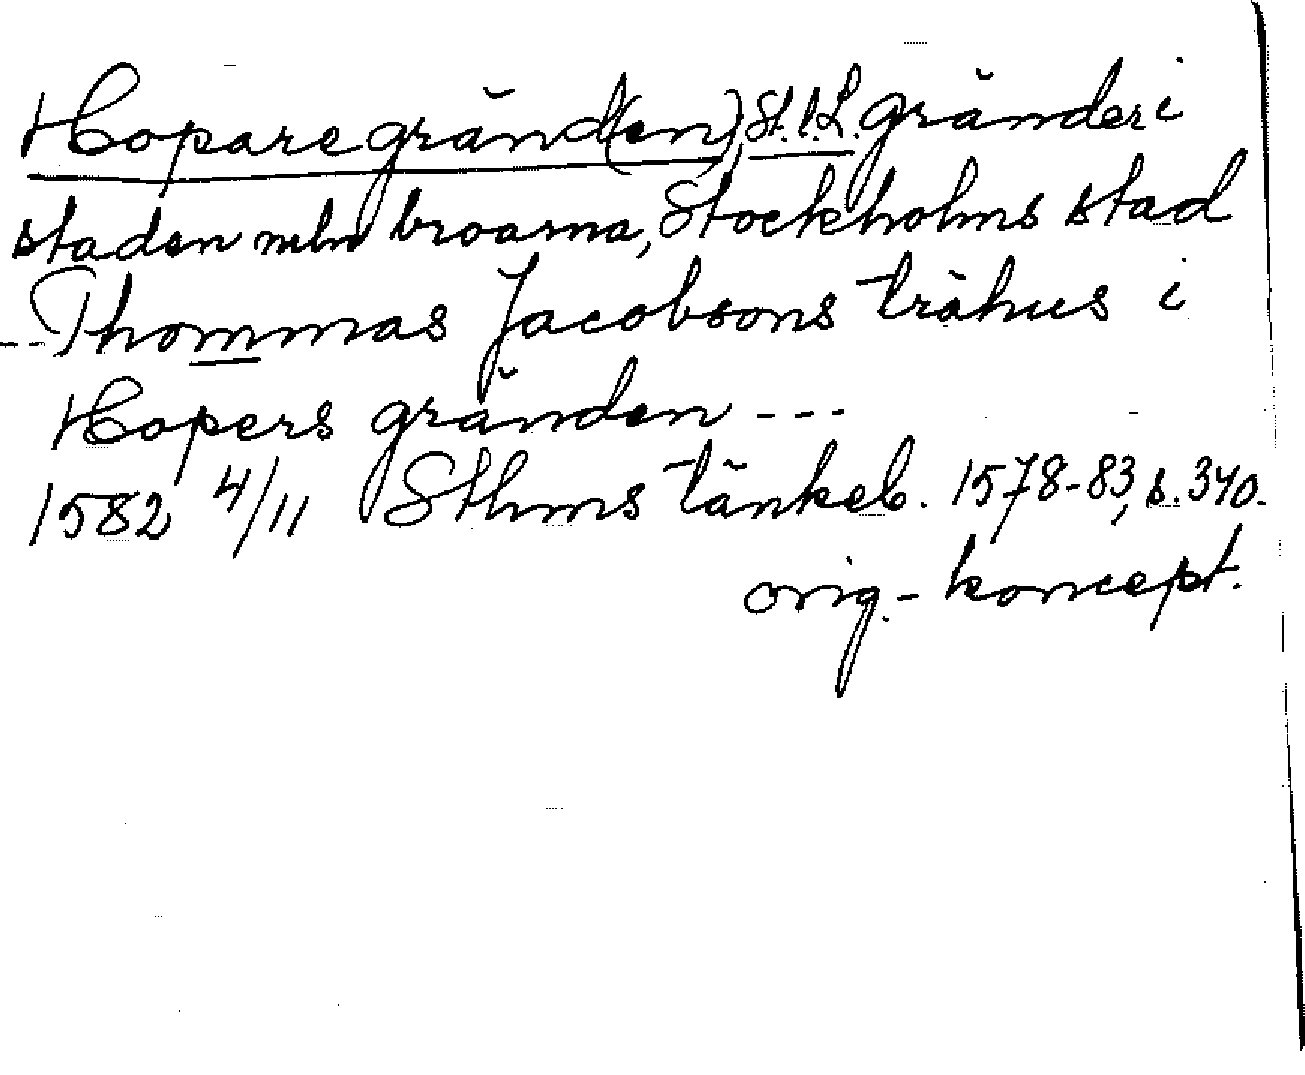 Hopare gränd(en), St. l. L. gränder i
staden mln broarna, Stockholms stad
--Thommas Jacobsons trähus i
Hopers gränden ---
1582 4/11 Sthms tänkeb. 1578-83, s. 340.
orig.- koncept.